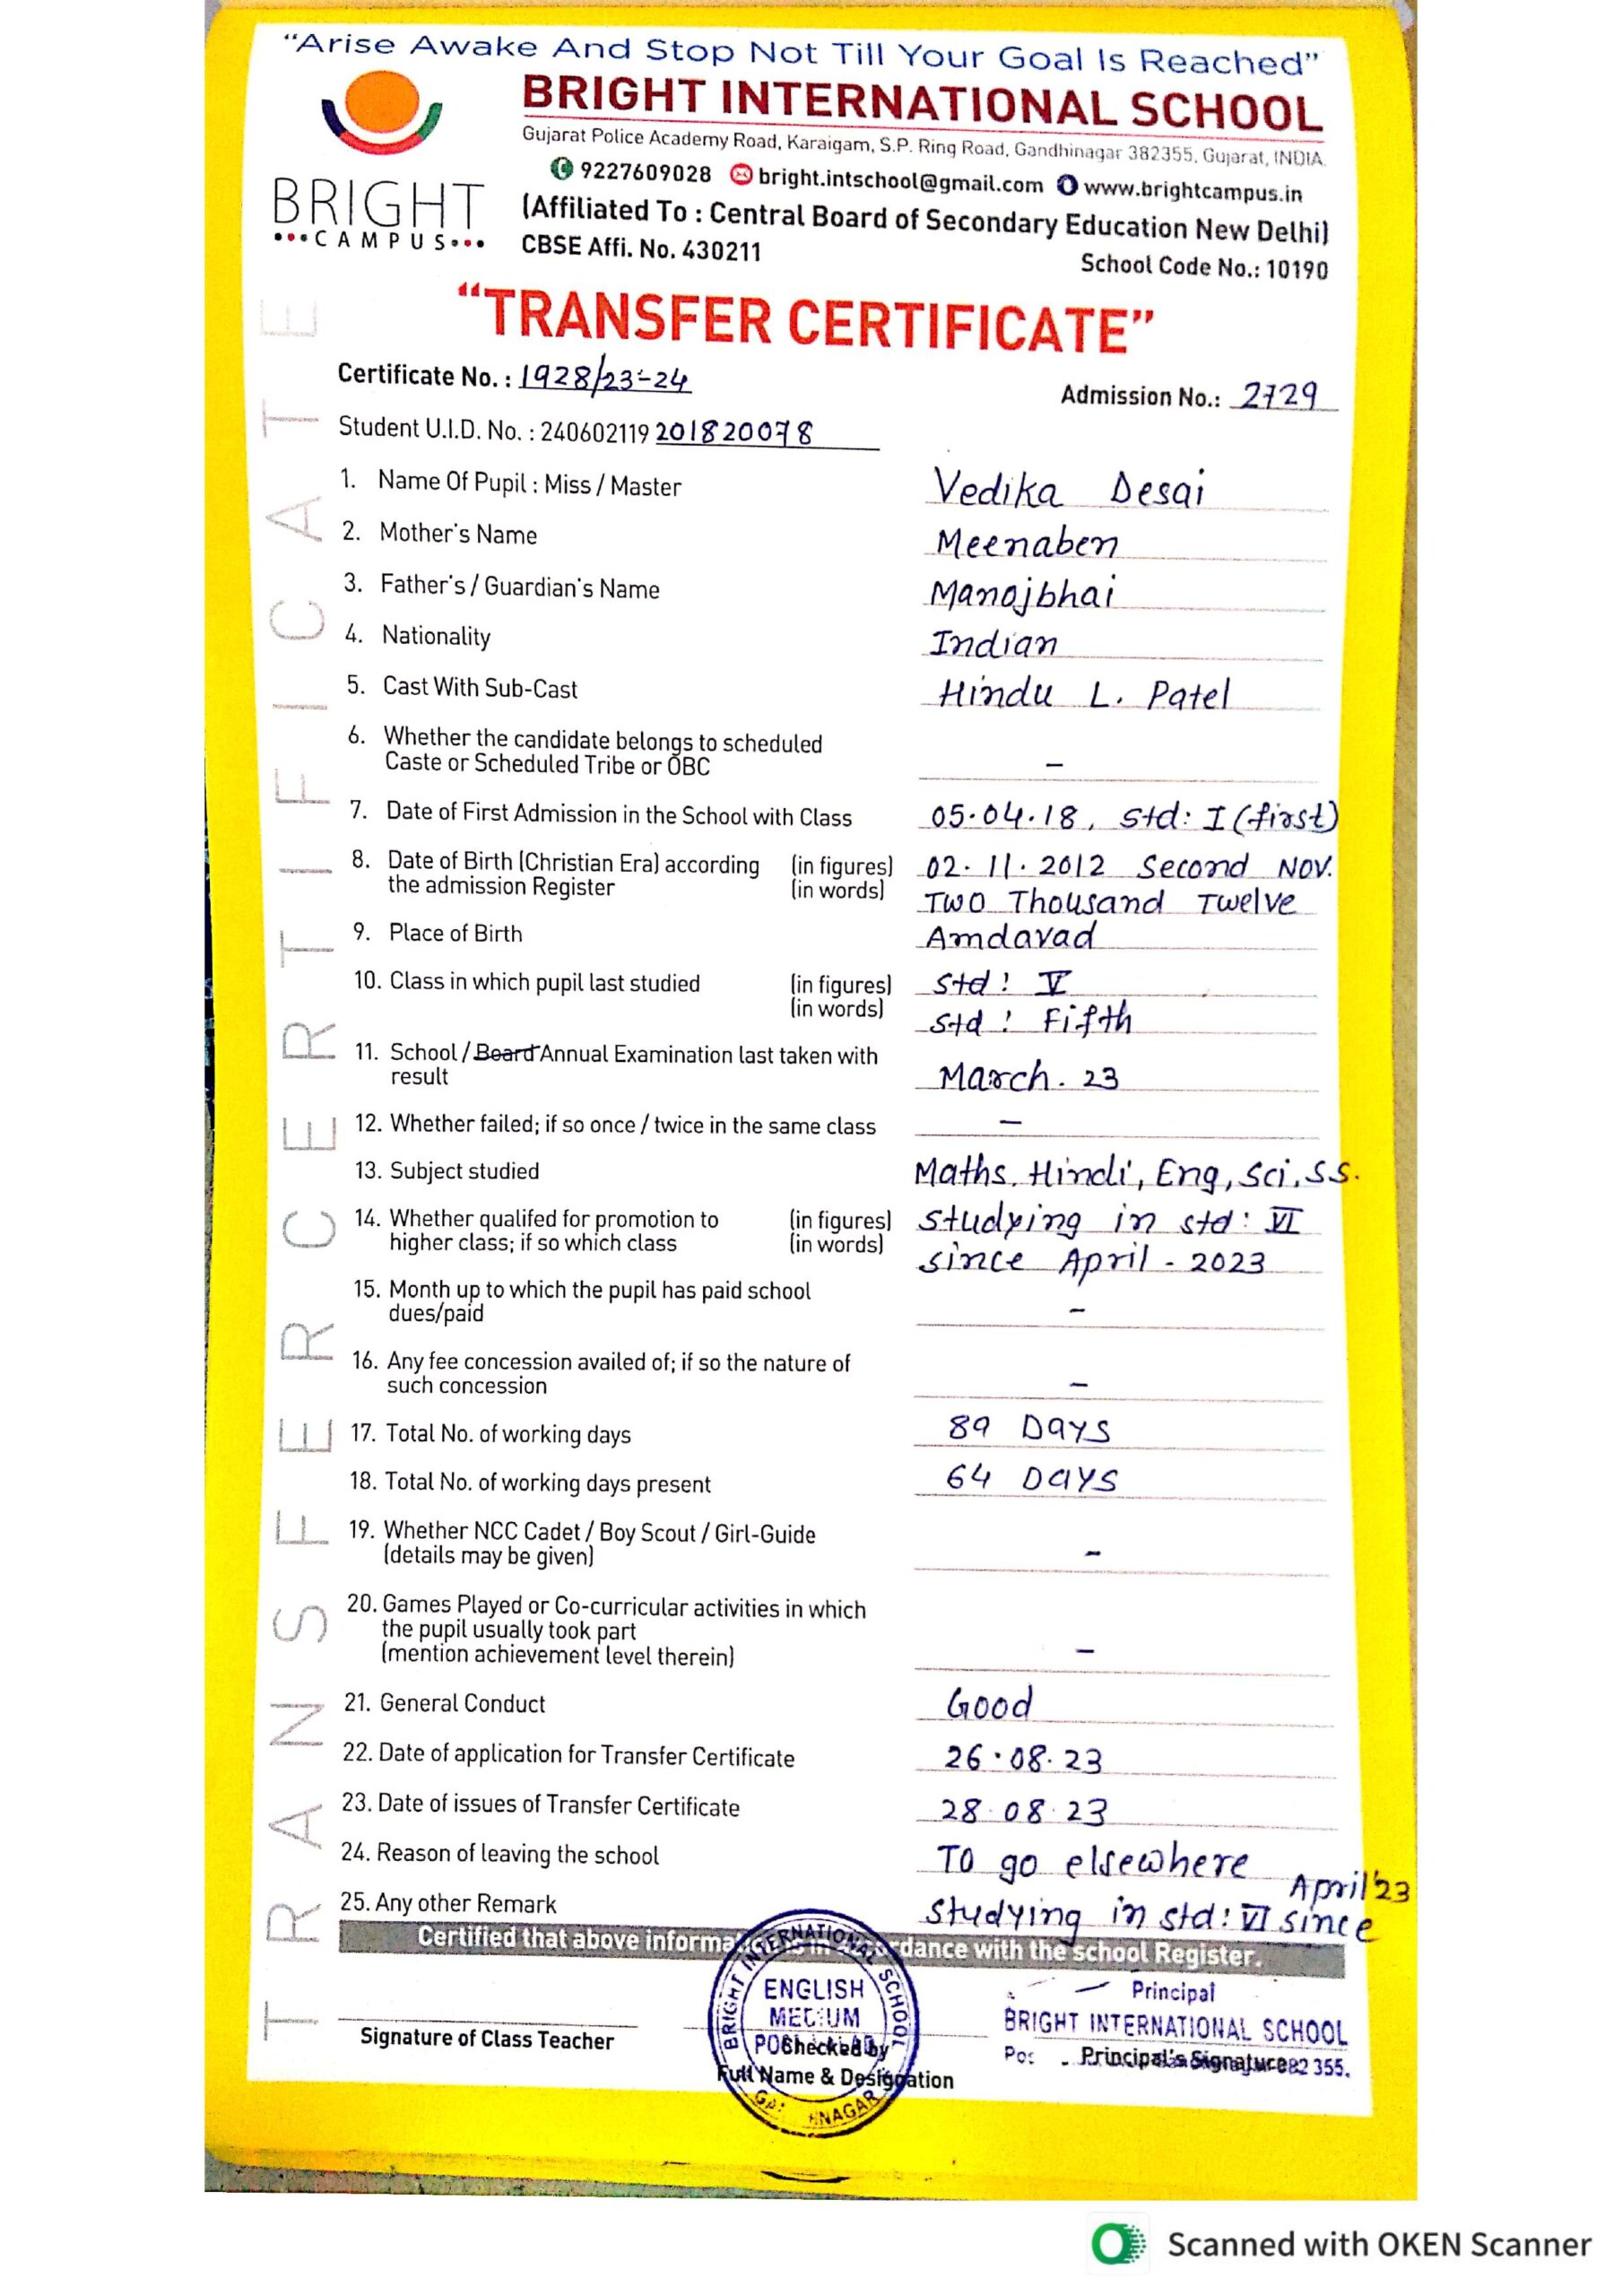 “Arise Awake And Stop Not Till Your Goal Is Reached”
BRIGHT INTERNATIONAL SCHOOL
Gujarat Police Academy Road, Karaigam, S.P. Ring Road, Gandhinagar 382355, Gujarat, INDIA.
9227609028 bright.intschool@gmail.com www.brightcampus.in
BRIGHT
CAMPUS
(Affiliated To : Central Board of Secondary Education New Delhi)
CBSE Affi. No. 430211
School Code No.: 10190
“TRANSFER CERTIFICATE”
Certificate No. : 1928/23-24
Admission No.: 2729
Student U.I.D. No. : 240602119 201820078
1. Name Of Pupil : Miss / Master Vedika Desai
2. Mother's Name Meenaben
3. Father's / Guardian's Name Manojbhai
4. Nationality Indian
5. Cast With Sub-Cast Hindu L. Patel
6. Whether the candidate belongs to scheduled
Caste or Scheduled Tribe or OBC –
7. Date of First Admission in the School with Class 05.04.18, Std: I (first)
8. Date of Birth (Christian Era) according (in figures) 02.11.2012 Second Nov.
the admission Register (in words) Two Thousand Twelve
9. Place of Birth Amdavad
10. Class in which pupil last studied (in figures) Std: V
(in words) Std: Fifth
11. School / Board Annual Examination last taken with
result March. 23
12. Whether failed; if so once / twice in the same class –
13. Subject studied Maths, Hindi, Eng, Sci, S.S.
14. Whether qualifed for promotion to (in figures) Studying in std: VI
higher class; if so which class (in words) since April - 2023
15. Month up to which the pupil has paid school
dues/paid –
16. Any fee concession availed of; if so the nature of
such concession –
17. Total No. of working days 89 Days
18. Total No. of working days present 64 Days
19. Whether NCC Cadet / Boy Scout / Girl-Guide
(details may be given) –
20. Games Played or Co-curricular activities in which
the pupil usually took part
(mention achievement level therein) –
21. General Conduct Good
22. Date of application for Transfer Certificate 26.08.23
23. Date of issues of Transfer Certificate 28.08.23
24. Reason of leaving the school To go elsewhere
25. Any other Remark Studying in std: VI since April'23
Certified that above in accordance with the school Register.
Principal
BRIGHT INTERNATIONAL SCHOOL
382 355.
Signature of Class Teacher
Checked by
Full Name & Designation
Principal's Signature
BRIGHT INTERNATIONAL SCHOOL
ENGLISH
MEDIUM
TRANSFER CERTIFICATE
Scanned with OKEN Scanner